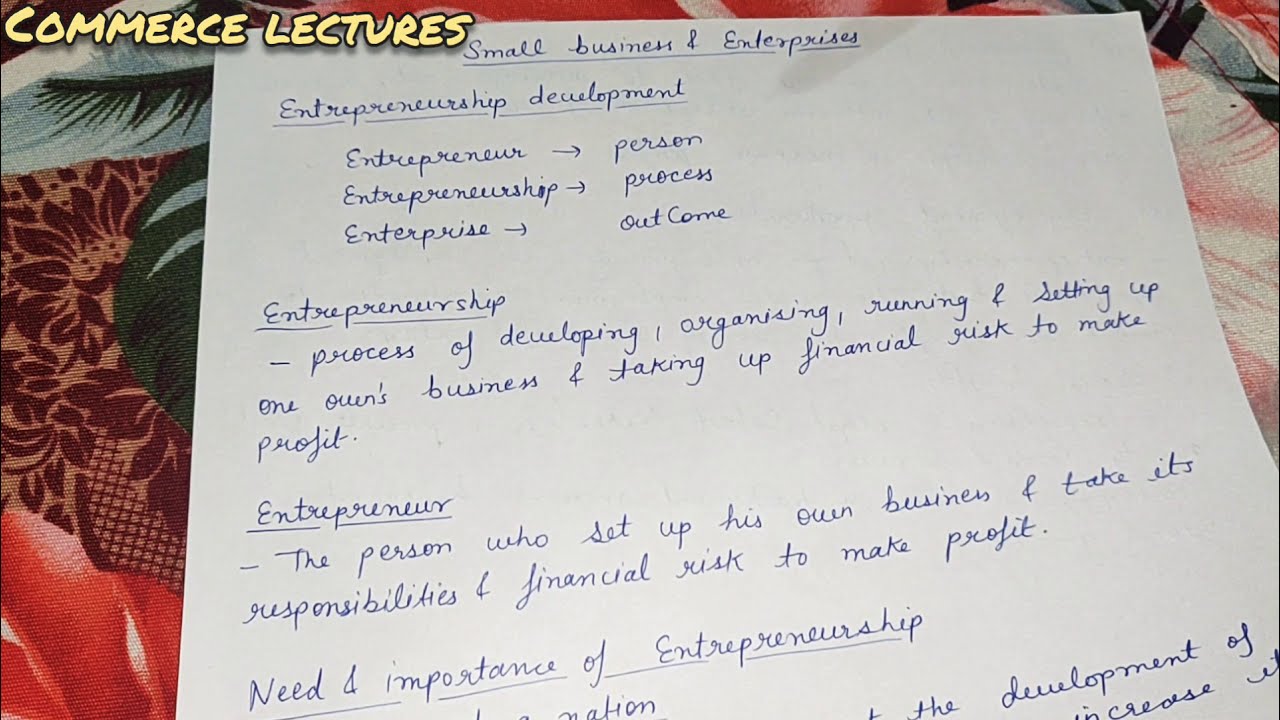 COMMERCE LECTURES
Small business & Enterprises
Entrepreneurship development
Entrepreneur → person
Entrepreneurship → process
Enterprise → outCome
Entrepreneurship
- process of developing, organising, running & setting up
one own's business & taking up financial risk to make
profit.
Entrepreneur
- The person who set up his own business & take its
responsibilities & financial risk to make profit.
Need & importance of Entrepreneurship
nation
the development of
increase